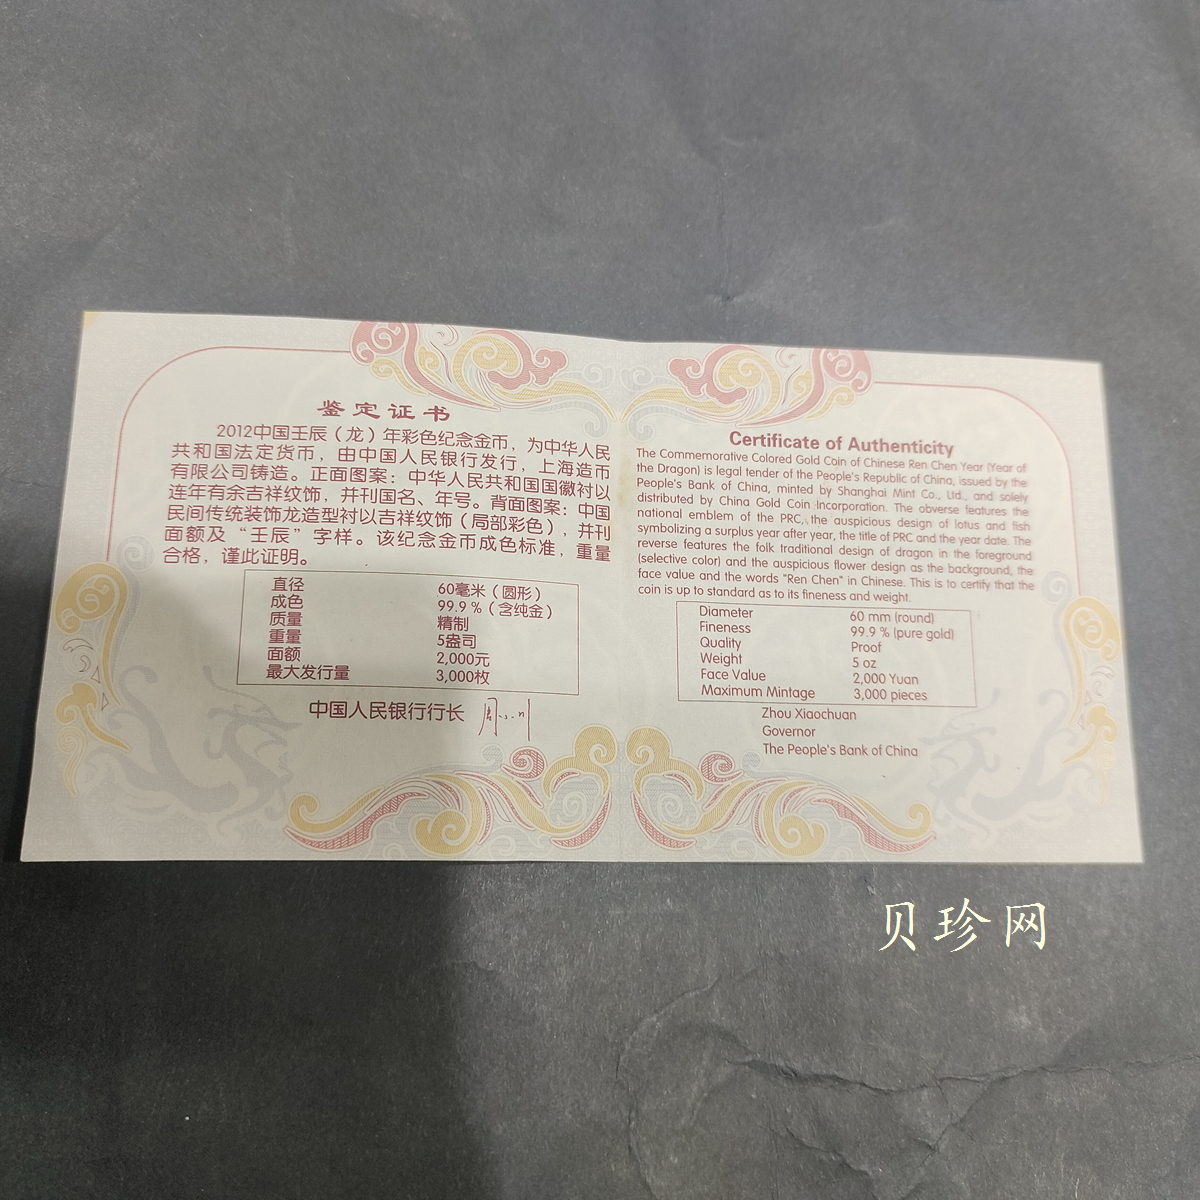 鉴定证书
2012中国壬辰（龙）年彩色纪念金币，为中华人民
共和国法定货币，由中国人民银行发行，上海造币
有限公司铸造。正面图案：中华人民共和国国徽衬以
连年有余吉祥纹饰，并刊国名、年号。背面图案：中国
民间传统装饰龙造型衬以吉祥纹饰（局部彩色），并刊
面额及“壬辰”字样。该纪念金币成色标准，重量
合格，谨此证明。
直径 60毫米（圆形）
成色 99.9％（含纯金）
质量 精制
重量 5盎司
面额 2,000元
最大发行量 3,000枚
中国人民银行行长
Certificate of Authenticity
The Commemorative Colored Gold Coin of Chinese Ren Chen Year (Year of
the Dragon) is legal tender of the People's Republic of China, issued by the
People's Bank of China, minted by Shanghai Mint Co., Ltd., and solely
distributed by China Gold Coin Incorporation. The obverse features the
national emblem of the PRC, the auspicious design of lotus and fish
symbolizing a surplus year after year, the title of PRC and the year date. The
reverse features the folk traditional design of dragon in the foreground
(selective color) and the auspicious flower design as the background, the
face value and the words "Ren Chen" in Chinese. This is to certify that the
coin is up to standard as to its fineness and weight.
Diameter 60 mm (round)
Fineness 99.9 % (pure gold)
Quality Proof
Weight 5 oz
Face Value 2,000 Yuan
Maximum Mintage 3,000 pieces
Zhou Xiaochuan
Governor
The People's Bank of China
贝珍网